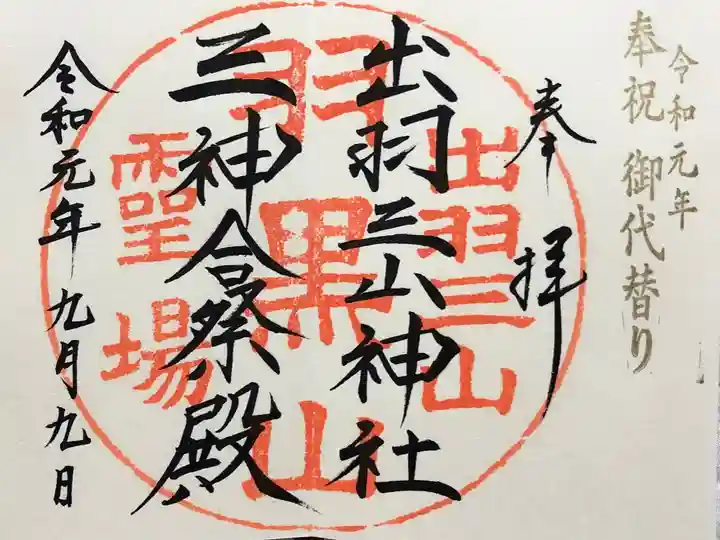 令和元年
奉祝 御代替り
奉拝
出羽三山神社
三神合祭殿
令和元年 九月九日
出羽三山
羽黒山
霊場